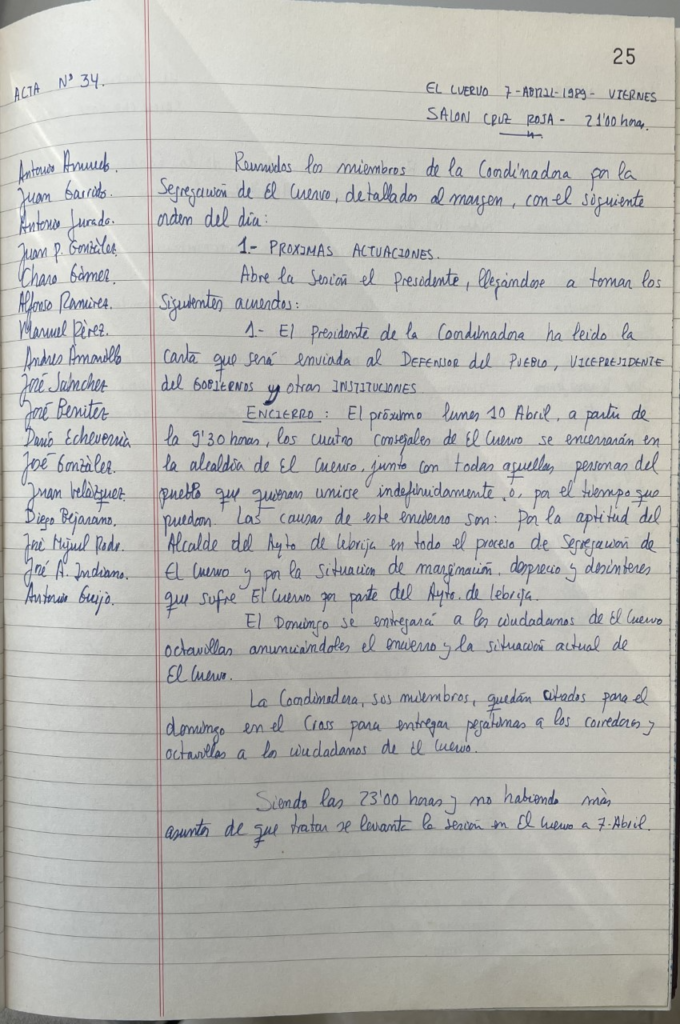 25
ACTA Nº 34.
EL CUERVO 7-ABRIL-1989- VIERNES
SALON CRUZ ROJA - 21'00 horas.
Antonio
Juan Garrido.
Antonio Jurado.
Juan P. González.
Charo Gómez.
Alfonso Ramírez.
Manuel Pérez.
Andrés Amarillo
José Sánchez
José Benítez
Darío Echeverría
José González.
Juan Velázquez.
Diego Bejarano.
José Miguel Rodr.
José A. Indiano.
Antonio Guijo.
Reunidos los miembros de la Coordinadora por la
Segregación de El Cuervo, detallados al margen, con el siguiente
orden del día:
1- PROXIMAS ACTUACIONES.
Abre la Sesión el Presidente, llegándose a tomar los
Siguientes acuerdos:
1- El Presidente de la Coordinadora ha leido la
Carta que será enviada al DEFENSOR del PUEBLO, VICEPRESIDENTE
del GOBIERNOS y otras INSTITUCIONES
ENCIERRO: El próximo lunes 10 Abril, a partir de
la 9'30 horas, los cuatro concejales de El Cuervo se encerrarán en
la alcaldía de El Cuervo, junto con todas aquellas personas del
pueblo que quieran unirse indefinidamente, o, por el tiempo que
puedan. Las causas de este encierro son: Por la aptitud del
Alcalde del Ayto de Lebrija en todo el proceso de Segregación de
El Cuervo y por la situacion de marginación, desprecio y desinteres
que sufre El Cuervo por parte del Ayto. de Lebrija.
El Domingo se entregará a los ciudadanos de El Cuervo
octavillas anunciándoles el encierro y la situación actual de
El Cuervo.
La Coordinadora, sus miembros, quedán citados para el
domingo en el Cross para entregar pegatinas a los corredores y
octavillas a los ciudadanos de El Cuervo.
Siendo las 23'00 horas y no habiendo más
asuntos de que tratar se levanta la sesión en El Cuervo a 7-Abril.